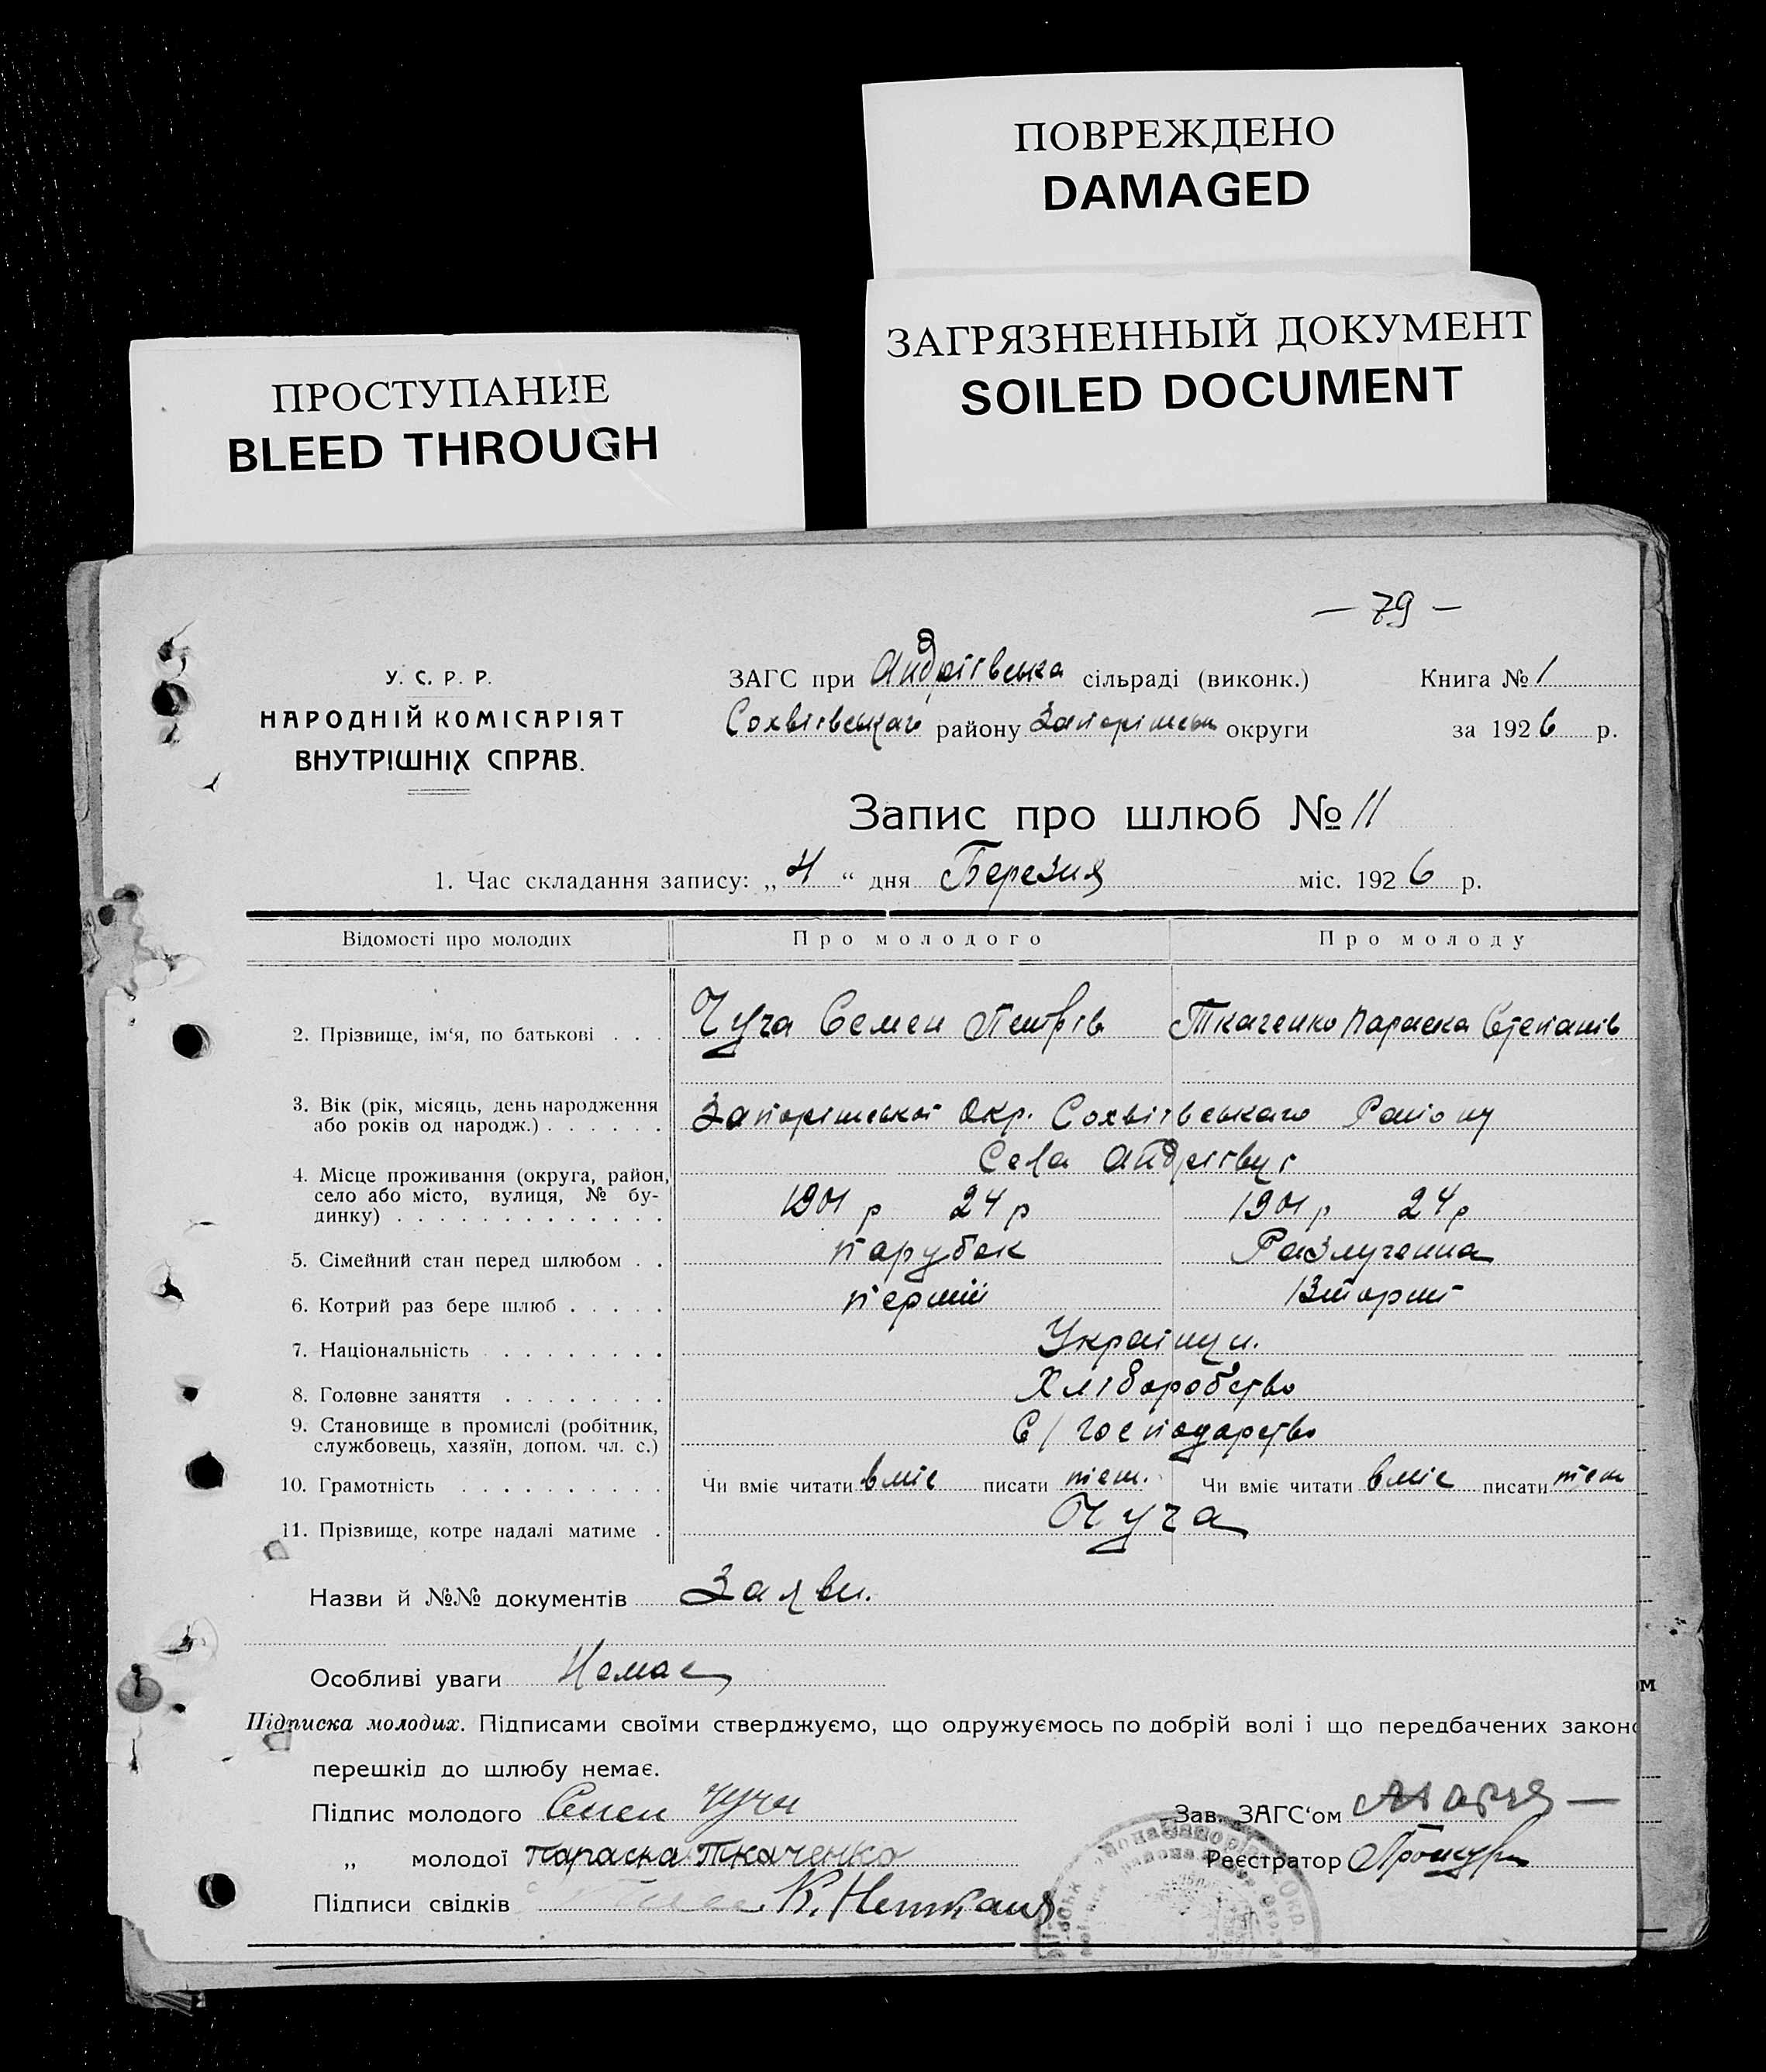 ПОВРЕЖДЕНО
DAMAGED
ЗАГРЯЗНЕННЫЙ ДОКУМЕНТ
SOILED DOCUMENT
ПРОСТУПАНИЕ
BLEED THROUGH
— 79 —
У. С. Р. Р.
НАРОДНІЙ КОМІСАРІЯТ
ВНУТРІШНІХ СПРАВ.
ЗАГС при Андріівська сільраді (виконк.) Книга № 1
Сохвіівського району Запоріжськ округи за 1926 р.
Запис про шлюб № 11
1. Час складання запису: „4“ дня Березня міс. 1926 р.
Відомості про молодих Про молодого Про молоду
2. Прізвище, ім‘я, по батькові . . . Чуча Семен Петрів Ткаченко Параска Степанів
3. Вік (рік, місяць, день народження
або років од народж.) . . . . . . Запоріжськоі Окр. Сохвіівського Раіону
4. Місце проживання (округа, район, Села Андріівці
село або місто, вулиця, № бу-
динку) . . . . . . . . . . . . . 1901 р 24 р 1901 р 24 р
5. Сімейний стан перед шлюбом . . парубок Разлученна
6. Котрий раз бере шлюб . . . . . перший Вторий
7. Національність . . . . . . . . Украінці.
8. Головне заняття . . . . . . . . Хліборобство
9. Становище в промислі (робітник,
службовець, хазяїн, допом. чл. с.) С/господарство
10. Грамотність . . . . . . . . . . Чи вміє читати вміє писати теж. Чи вміє читати вміє писати теж
11. Прізвище, котре надалі матиме . Чуча
Назви й №№ документів Заяви.
Особливі уваги Немає
Підписка молодих. Підписами своїми стверджуємо, що одружуємось по добрій волі і що передбачених законо
перешкід до шлюбу немає.
Підпис молодого Семен Чуча Зав. ЗАГС‘ом
„ молодої Параска Ткаченко Реєстратор
Підписи свідків К.